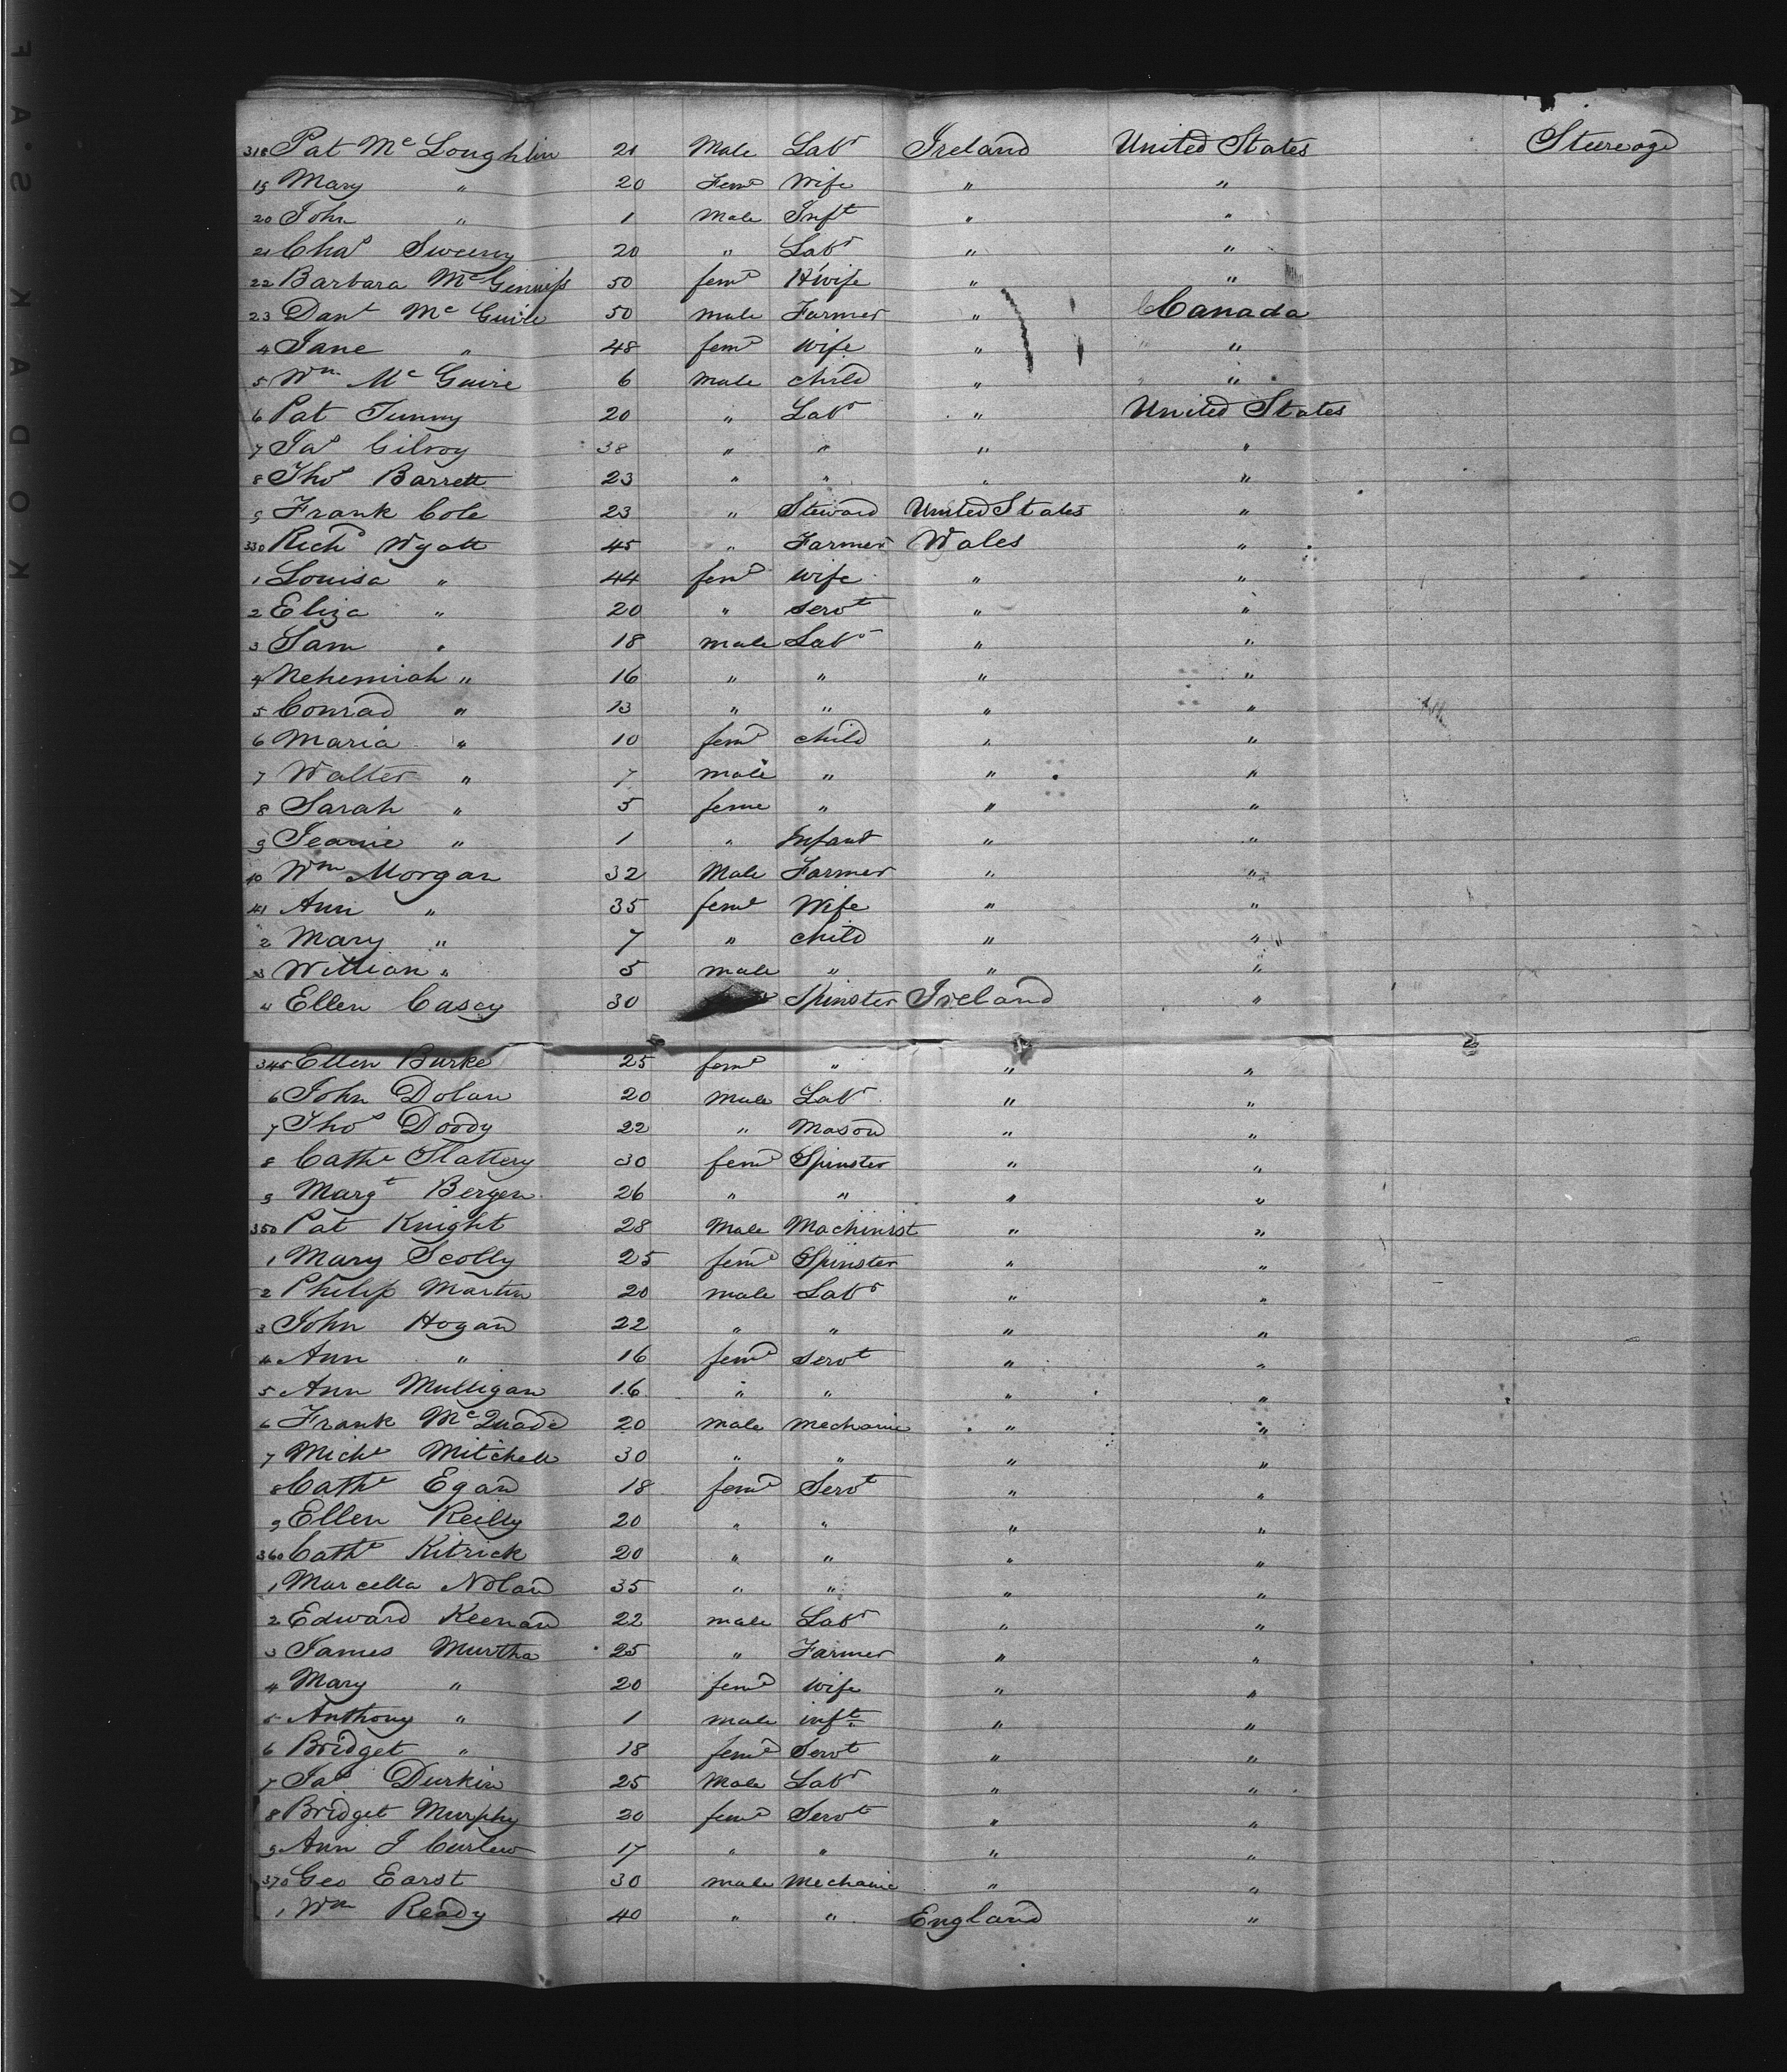 318 Pat Mc Loughlin 21 Male Labr Ireland United States Steerage
19 Mary " 20 Feme Wife " "
20 John " 1 Male Inft " "
21 Chas Sweeny 20 " Labr " "
22 Barbara McGinniss 50 feme H'wife " "
23 Danl Mc Guire 50 male Farmer " Canada
4 Jane " 48 feme wife " "
5 Wm Mc Guire 6 male child " "
6 Pat Tunny 20 " Labr " United States
7 Jas Gilroy 38 " " " "
8 Thos Barrett 23 " " " "
9 Frank Cole 23 " Steward United States "
330 Richd Wyatt 45 " Farmer Wales "
1 Louisa " 44 feme wife " "
2 Eliza " 20 " servt " "
3 Sam " 18 male Labr " "
4 Nehemiah " 16 " " " "
5 Conrad " 13 " " " "
6 Maria " 10 feme child " "
7 Walter " 7 male " " "
8 Sarah " 5 feme " " "
9 Jeanie " 1 " Infant " "
40 Wm Morgan 32 Male Farmer " "
41 Ann " 35 feme Wife " "
2 Mary " 7 " child " "
3 William " 5 male " " "
4 Ellen Casey 30 Spinster Ireland "
345 Ellen Burke 25 feme " " "
6 John Dolan 20 male Labr " "
7 Thos Doody 22 " Mason " "
8 Cathe Slattery 30 feme Spinster " "
9 Margt Bergen 26 " " " "
350 Pat Knight 28 Male Machinist " "
1 Mary Scolly 25 feme Spinster " "
2 Philip Martin 20 male Labr " "
3 John Hogan 22 " " " "
4 Ann " 16 feme servt " "
5 Ann Mulligan 16 " " " "
6 Frank McQuade 20 male mechanic " "
7 Michl Mitchell 30 " " " "
8 Cathe Egan 18 feme Servt " "
9 Ellen Reilly 20 " " " "
360 Cathe Kitrick 20 " " " "
1 Marcella Nolan 35 " " " "
2 Edward Keenan 22 male Labr " "
3 James Murtha 25 " Farmer " "
4 Mary " 20 feme wife " "
5 Anthony " 1 male inft " "
6 Bridget " 18 feme Servt " "
7 Jas Durkin 25 Male Labr " "
8 Bridget Murphy 20 feme Servt " "
9 Ann J Curlew 17 " " " "
370 Geo Earst 30 male Mechanic " "
1 Wm Ready 40 " " England "
KODAK S.A F